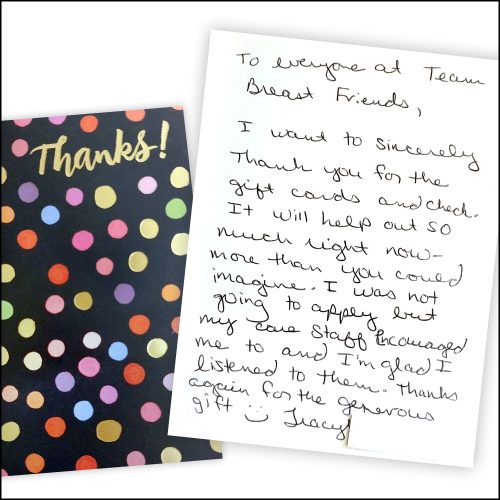 Thanks!
To everyone at Team
Breast Friends,
I want to sincerely
Thank you for the
gift cards and check.
It will help out so
much right now-
more than you could
imagine. I was not
going to apply but
my care staff encouraged
me to and I'm glad I
listened to them. Thanks
again for the generous
gift Tracy